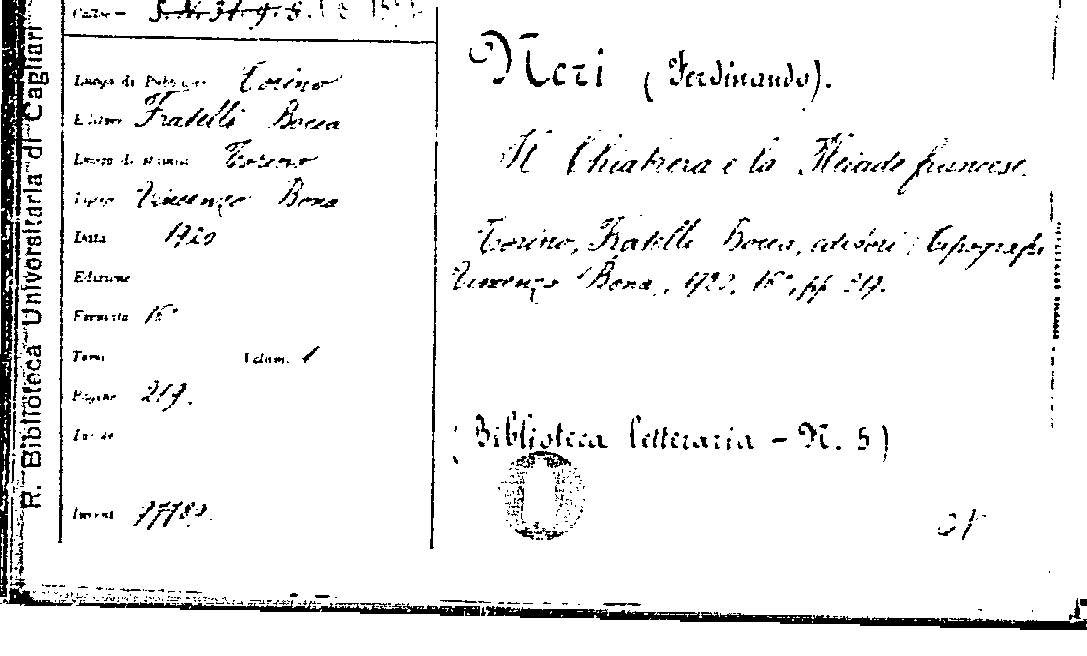 R. Biblioteca Universitaria di Cagliari
Luogo di Pubblic. Torino
Editore Fratelli Bocca
Luogo di stampa Torino
Tipog. Vincenzo Bona
Data 1920
Edizione
Formato 16°
Tomi Volumi 1
Pagine 219.
Invent.
Neri (Ferdinando).
Il Chiabrera e la Pleiade francese.
Torino, Fratelli Bocca, editori (tipografia
Vincenzo Bona), 1920, 16°, pp. 219.
(Biblioteca letteraria - N. 5)